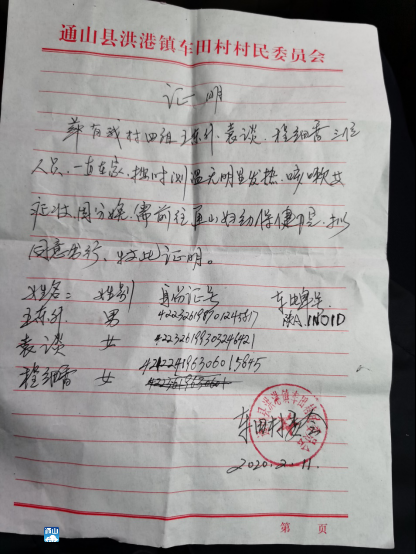 通山县洪港镇车田村村民委员会
证明
兹有我村四组王东升、袁谈、程细香三位
人员,一直在家,按时测温无明显发热,咳嗽
症状,因分娩,需前往通山妇幼保健院,拟
同意出行,特此证明。
姓名: 性别 身份证号 车牌号
王东升 男
袁谈 女 422326199303246421
程细香 女
车田村委会
2020.2.11.
第 页
通山